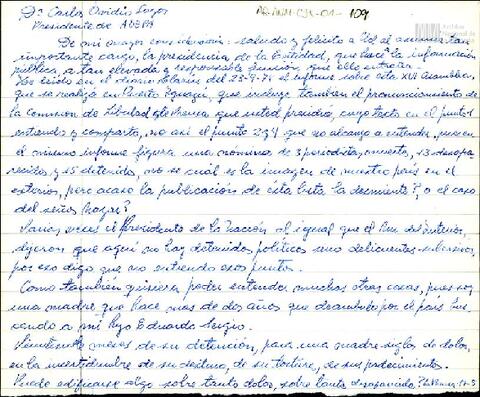 Dr Carlos Ovidio Lagos
AR-ANM-CJK-01- 109
Presidente de ADEPA
De mi mayor consideración: saludo y felicito a Ud al asumir tan
importante cargo, la presidencia de la Entidad, que hace a la información
pública, a tan elevada y responsable función que ello entraña.
He leído en el diario Clarín del 23-9-79 el informe sobre esta XVII Asamblea,
que se realiza en Puerto Iguazú, que incluye también el pronunciamiento de
la Comisión de Libertad de Prensa que usted presidía, cuyo texto en el punto 1
entiendo y comparto, no así el punto 2 y 4 que no alcanzo a entender, pues en
el mismo informe figura una nómina de 3 periodistas muertos, 13 desapa
recidos y 15 detenidos, no se cual es la imagen de nuestro país en el
exterior, pero acaso la publicación de esta lista la desmiente?, o el caso
del señor
Varias veces el Presidente de la Nación al igual que el del Interior,
dijeron que aquí no hay detenidos políticos sino delincuentes subversivos,
por eso digo que no entiendo esos puntos.
Como también quisiera poder entender muchas otras cosas, pues soy
una madre que hace mas de dos años que deambulo por el país bus
cando a mi hijo Eduardo Sergio.
meses de su detención, para una madre siglos de dolor,
en la incertidumbre de su destino, de su tortura, de sus padecimientos.
Puede edificarse algo sobre tanto dolor, sobre tanto desaparecido,